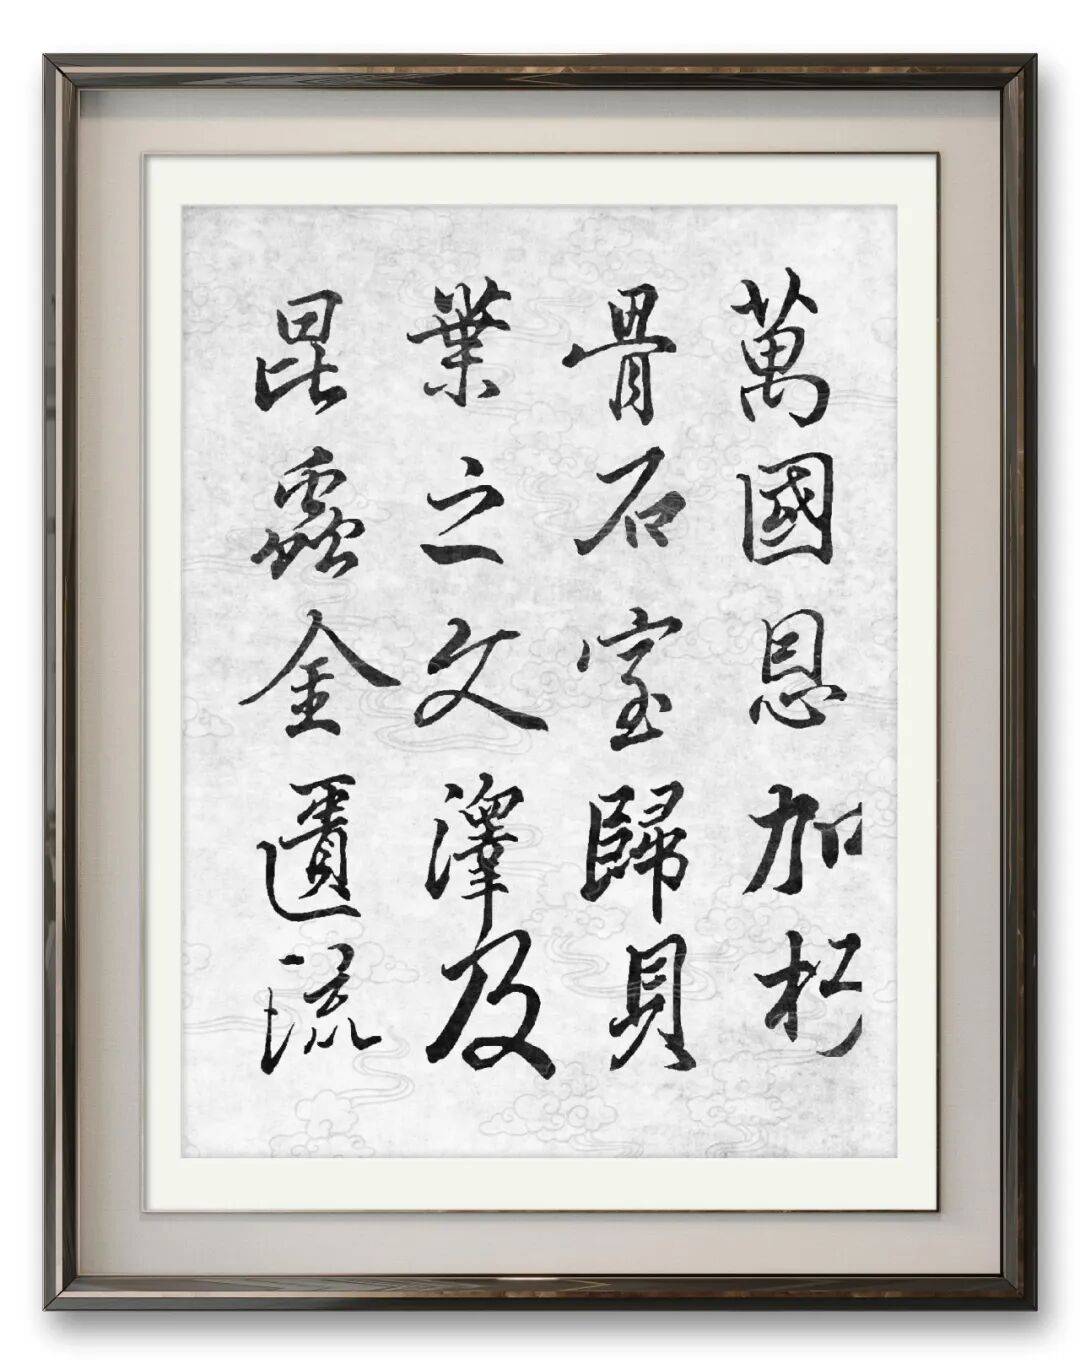 萬國恩加朽
骨石室歸貝
葉之文澤及
昆蟲金匱流